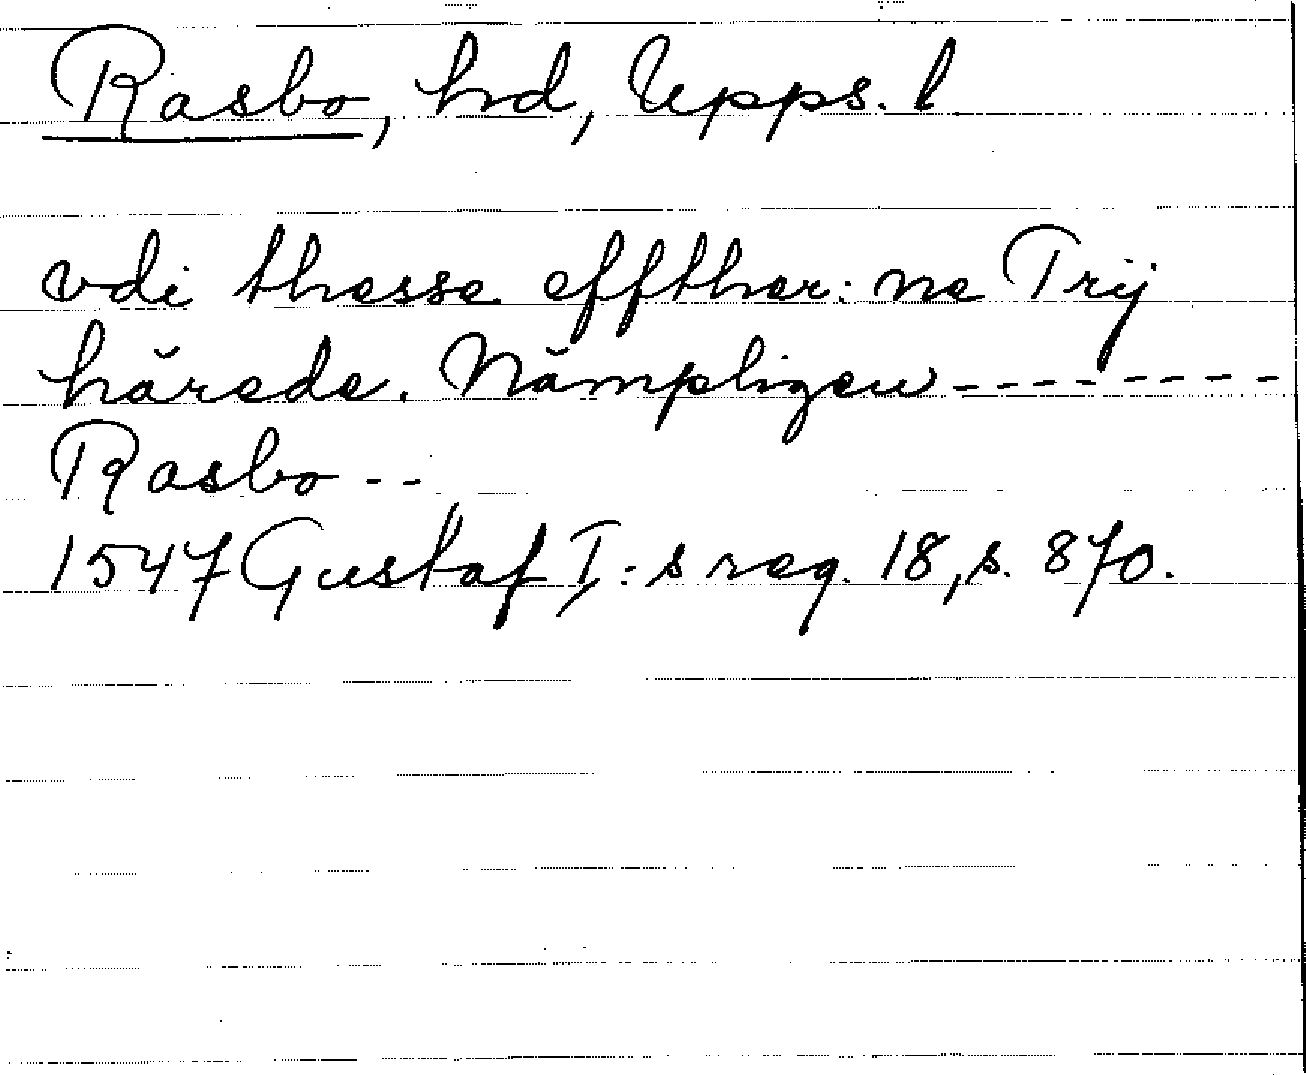 Rasbo, hd, Upps. l
vdi thesse effther: ne Trij
härede. Nämpligen --------
Rasbo --
1547 Gustaf I:s reg. 18, s. 870.